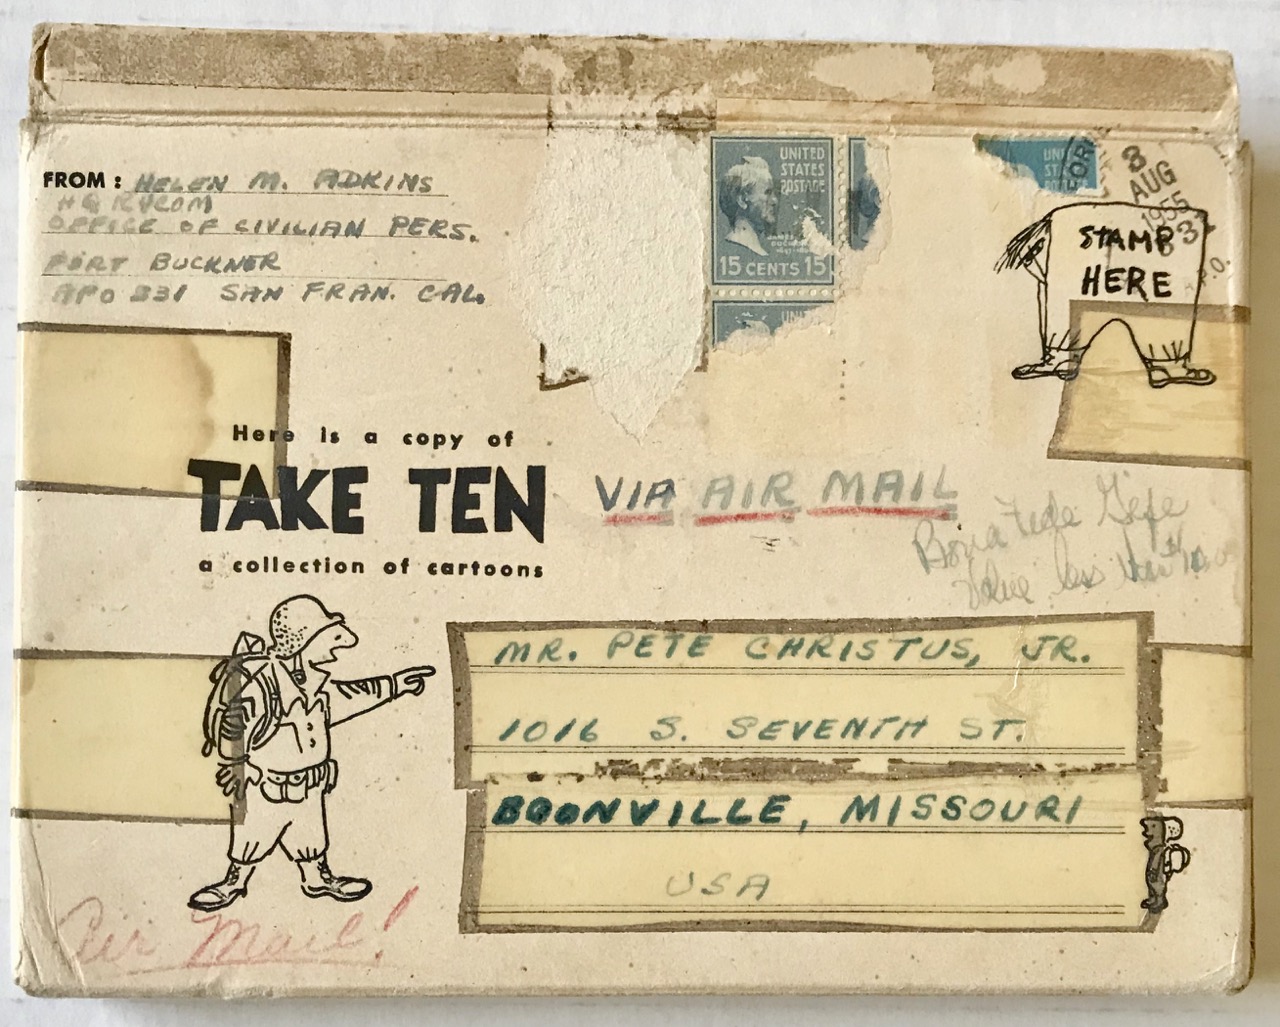 FROM: HELEN M. ADKINS
HQ RYCOM
OFFICE OF CIVILIAN PERS.
FORT BUCKNER
APO 331 SAN FRAN. CAL.
UNITED
STATES
POSTAGE
15 CENTS 15
UNIT
UN
ST
8
AUG
1955
STAMP
HERE
Here is a copy of
TAKE TEN
a collection of cartoons
VIA AIR MAIL
Bona Fide Gift
Value less than
MR. PETE CHRISTUS, JR.
1016 S. SEVENTH ST.
BOONVILLE, MISSOURI
USA
Air Mail!